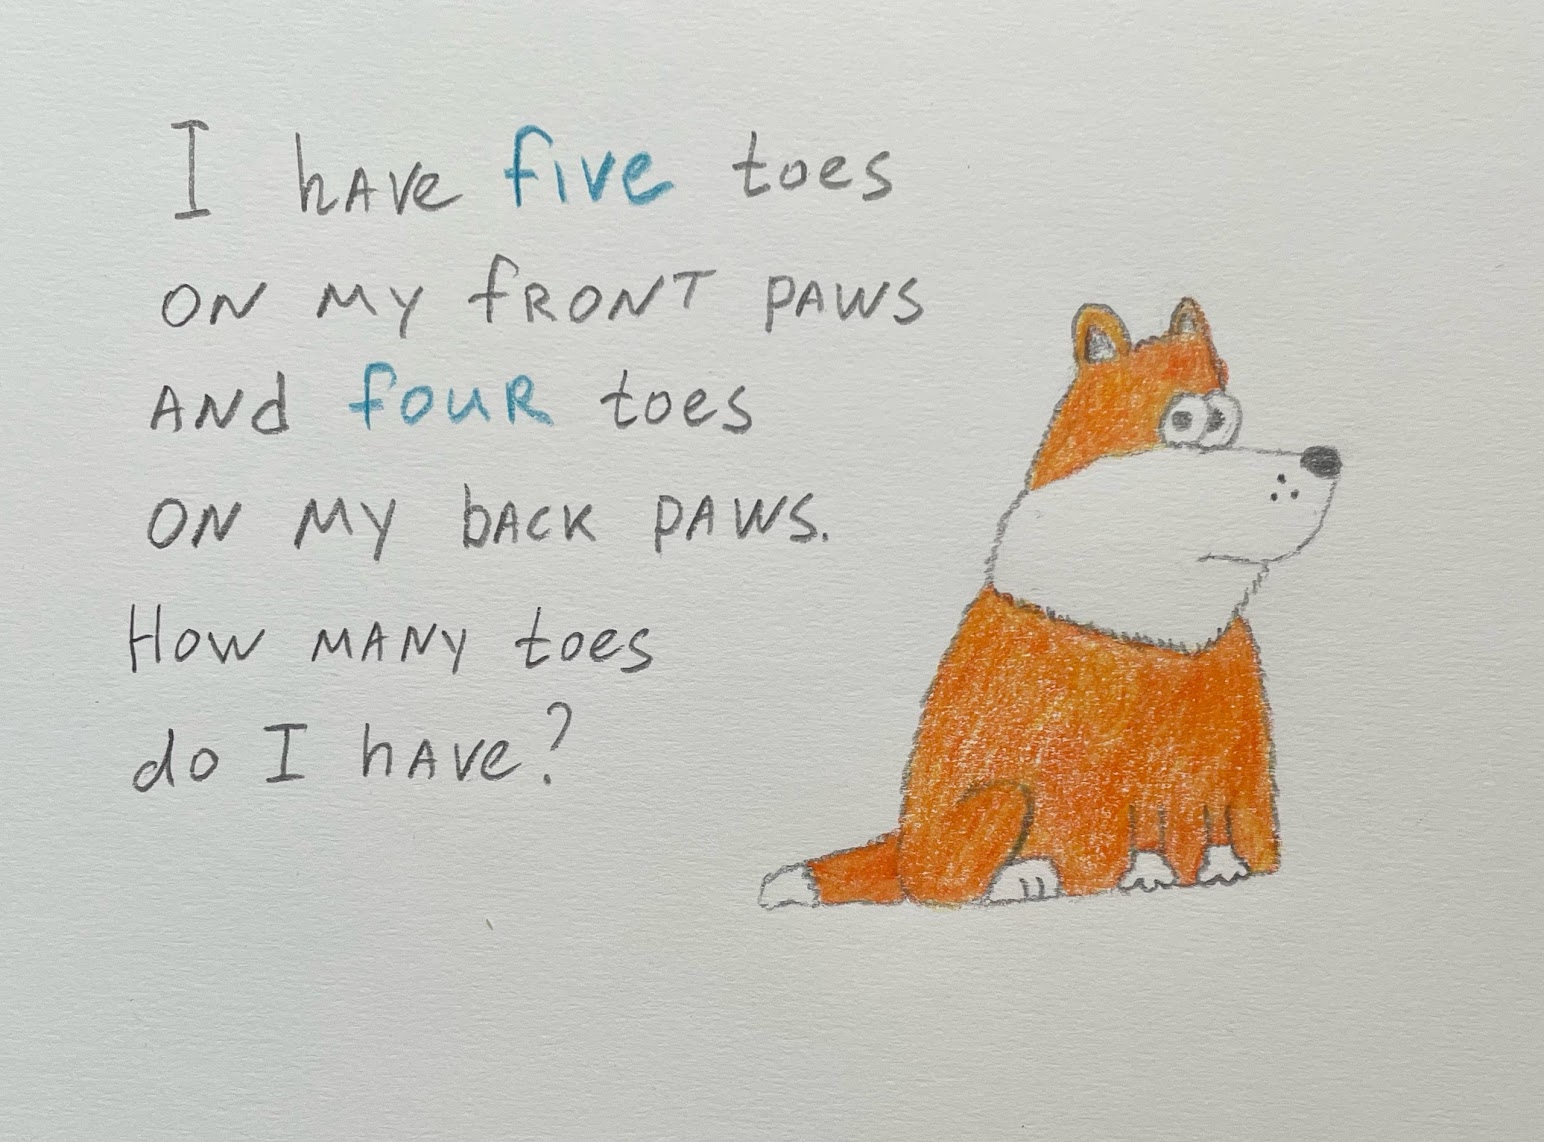 I have five toes
on my front paws
and four toes
on my back paws.
How many toes
do I have?